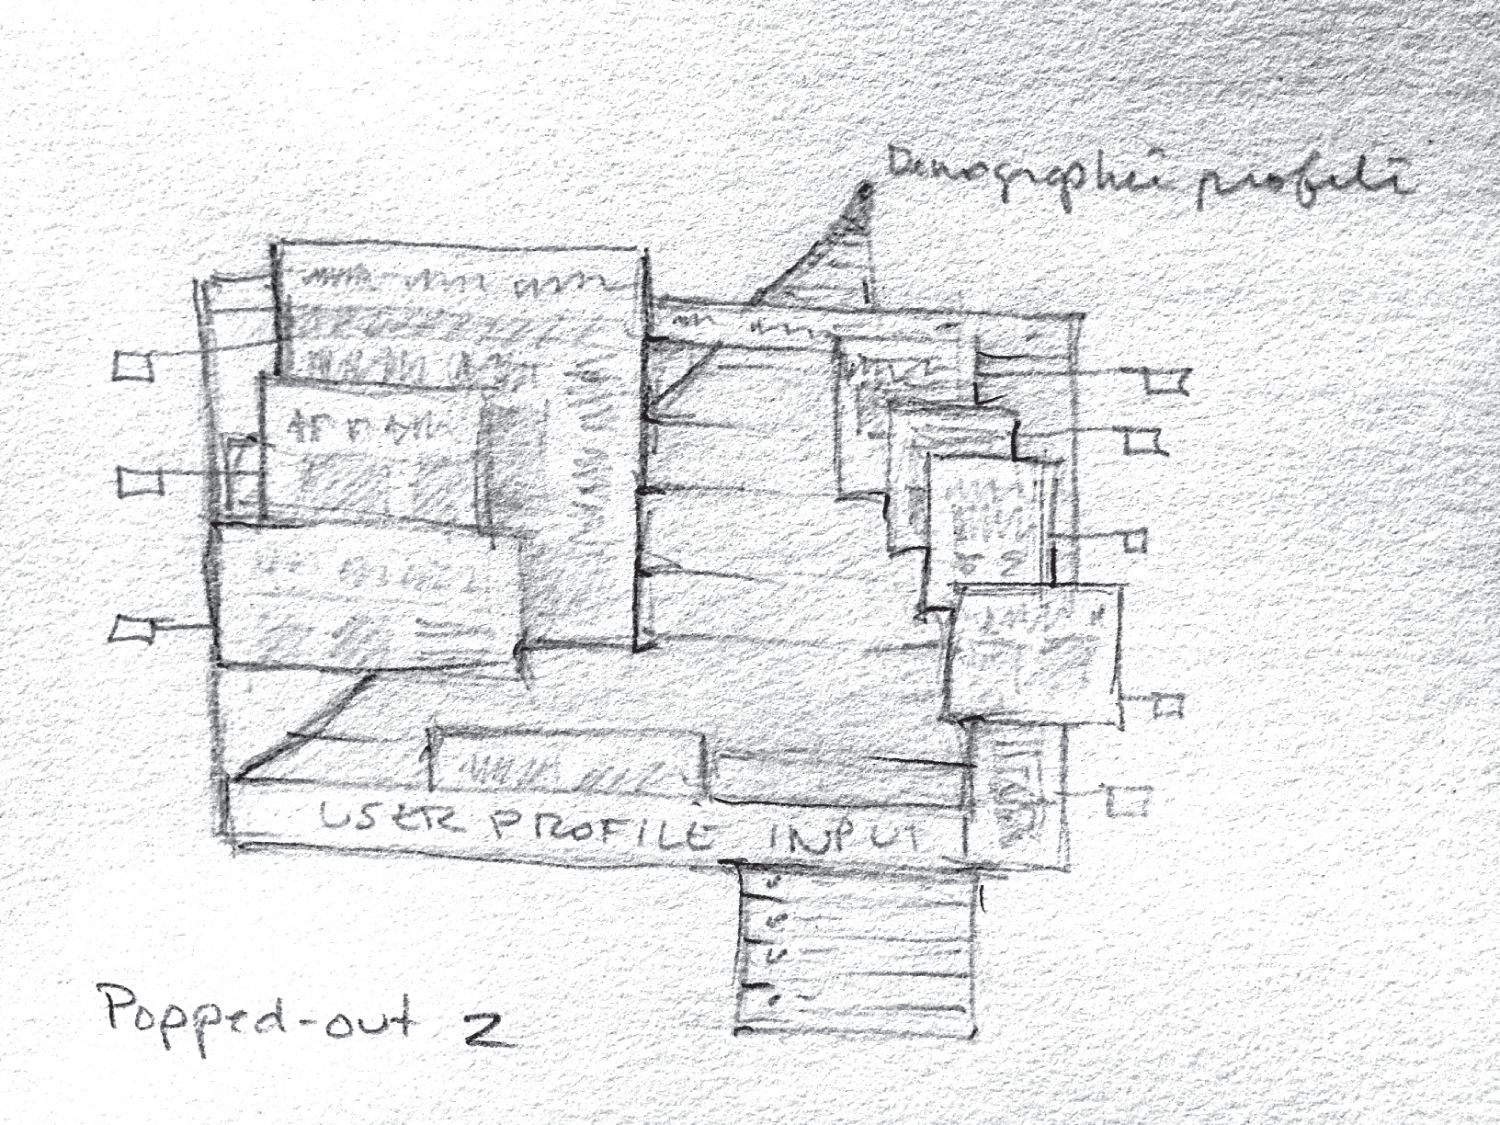 Demographic profile
USER PROFILE INPUT
Popped-out 2